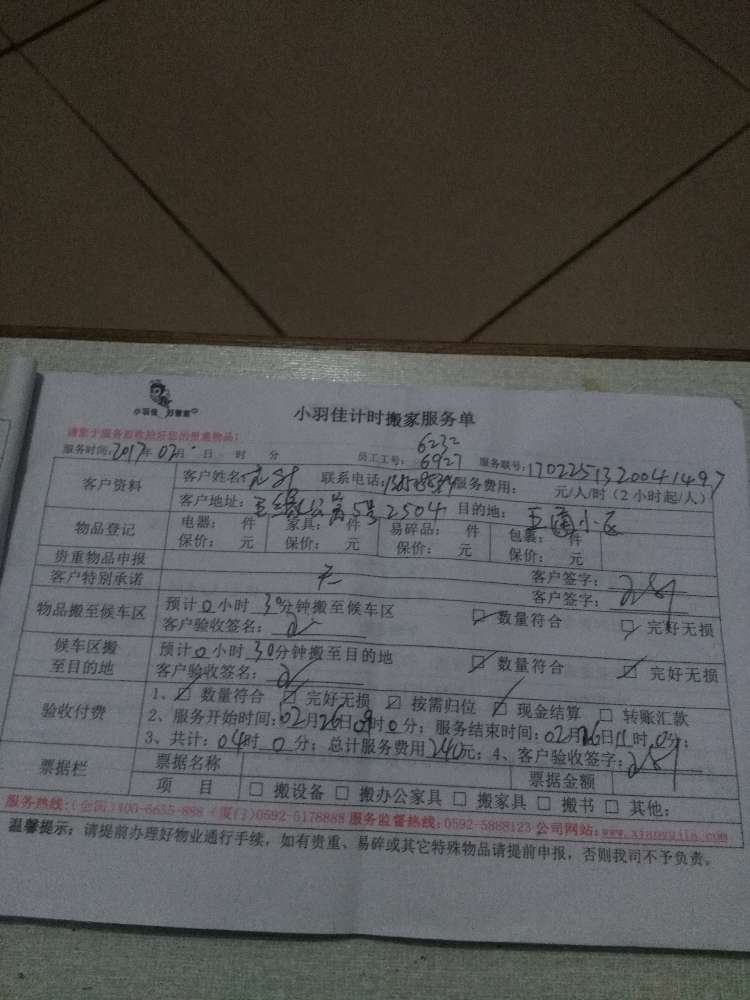 小羽佳 好管家
小羽佳计时搬家服务单
请您于服务前收拾好您的贵重物品!
服务时间:2017年02月 日 时 分 员工工号: 6232 6927 服务联号:170225132004 1497
客户资料 客户姓名: 联系电话: 服务费用: 元/人/时(2小时起/人)
客户地址: 公寓5号2504 目的地: 小区
物品登记 电器: 件 家具: 件 易碎品: 件 包裹: 件
保价: 元 保价: 元 保价: 元 保价: 元
贵重物品申报 无 客户签字:
客户特别承诺 客户签字:
物品搬至候车区 预计0小时30分钟搬至候车区 ☑ 数量符合 ☑ 完好无损
客户验收签名:
候车区搬至目的地 预计0小时30分钟搬至目的地 ☑ 数量符合 ☑ 完好无损
客户验收签名:
验收付费 1、☑ 数量符合 ☑ 完好无损 ☑ 按需归位 ☑ 现金结算 □ 转账汇款
2、服务开始时间:02月26日09时0分;服务结束时间:02月26日11时0分;
3、共计:04时0分;总计服务费用240元;4、客户验收签字:
票据栏 票据名称 票据金额
项 目 □ 搬设备 □ 搬办公家具 □ 搬家具 □ 搬书 □ 其他:
服务热线:(全国)400-6655-888 (厦门)0592-5178888 服务监督热线:0592-5888123 公司网站:www.xiaoyujia.com
温馨提示:请提前办理好物业通行手续,如有贵重、易碎或其它特殊物品请提前申报,否则我司不予负责。